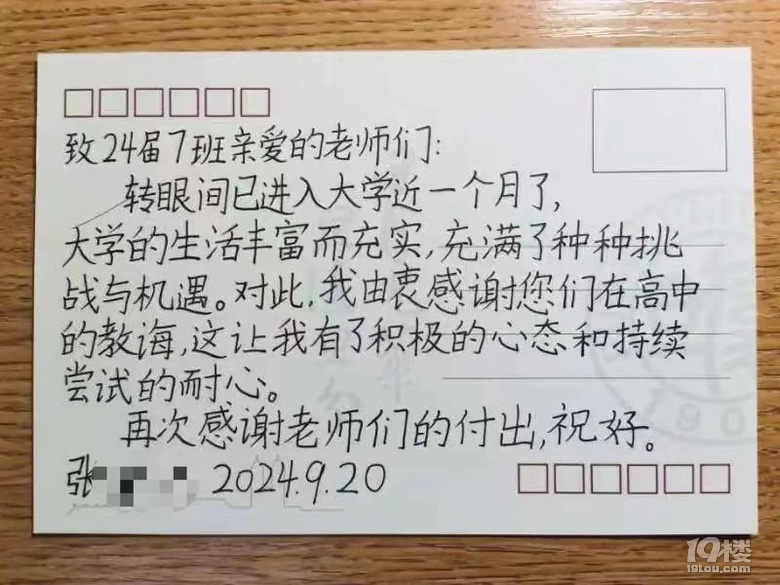 致24届7班亲爱的老师们:
转眼间已进入大学近一个月了,
大学的生活丰富而充实,充满了种种挑
战与机遇。对此,我由衷感谢您们在高中
的教诲,这让我有了积极的心态和持续
尝试的耐心。
再次感谢老师们的付出,祝好。
张 2024.9.20
19楼
19lou.com